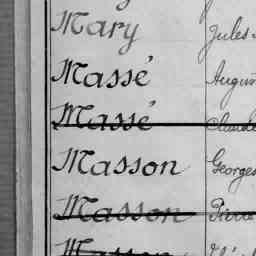 Mary Jules
Massé
Massé Claude
Masson Georges
Masson Pierre
Masson